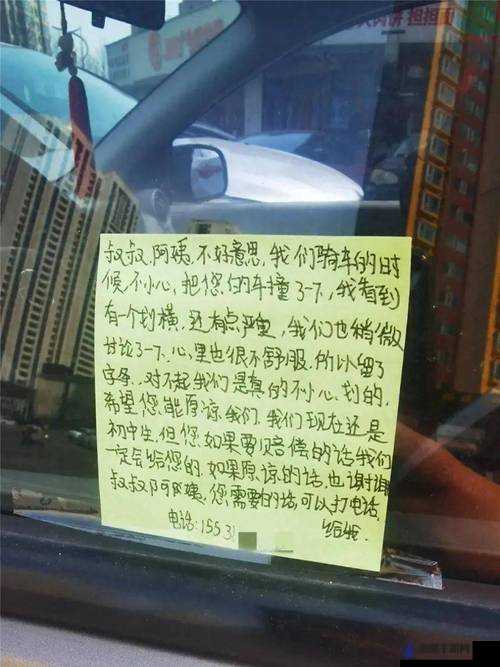 担担面
叔叔、阿姨,不好意思,我们骑车的时
候,不小心,把您的车撞了一下,我看到
有一个划横,还有点严重,我们也稍微
讨论了一下,心里也很不舒服.所以留了
字条,对不起我们是真的不小心划的,
希望您能原谅我们,我们现在还是
初中生,但您如果要赔偿的话我们
一定会给您的,如果原谅的话,也谢谢
叔叔阿姨,您需要的话可以打电话
给我.
电话:15531